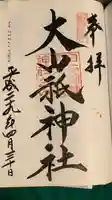 奉拝
大山祇神社
平成二十九年四月三十日